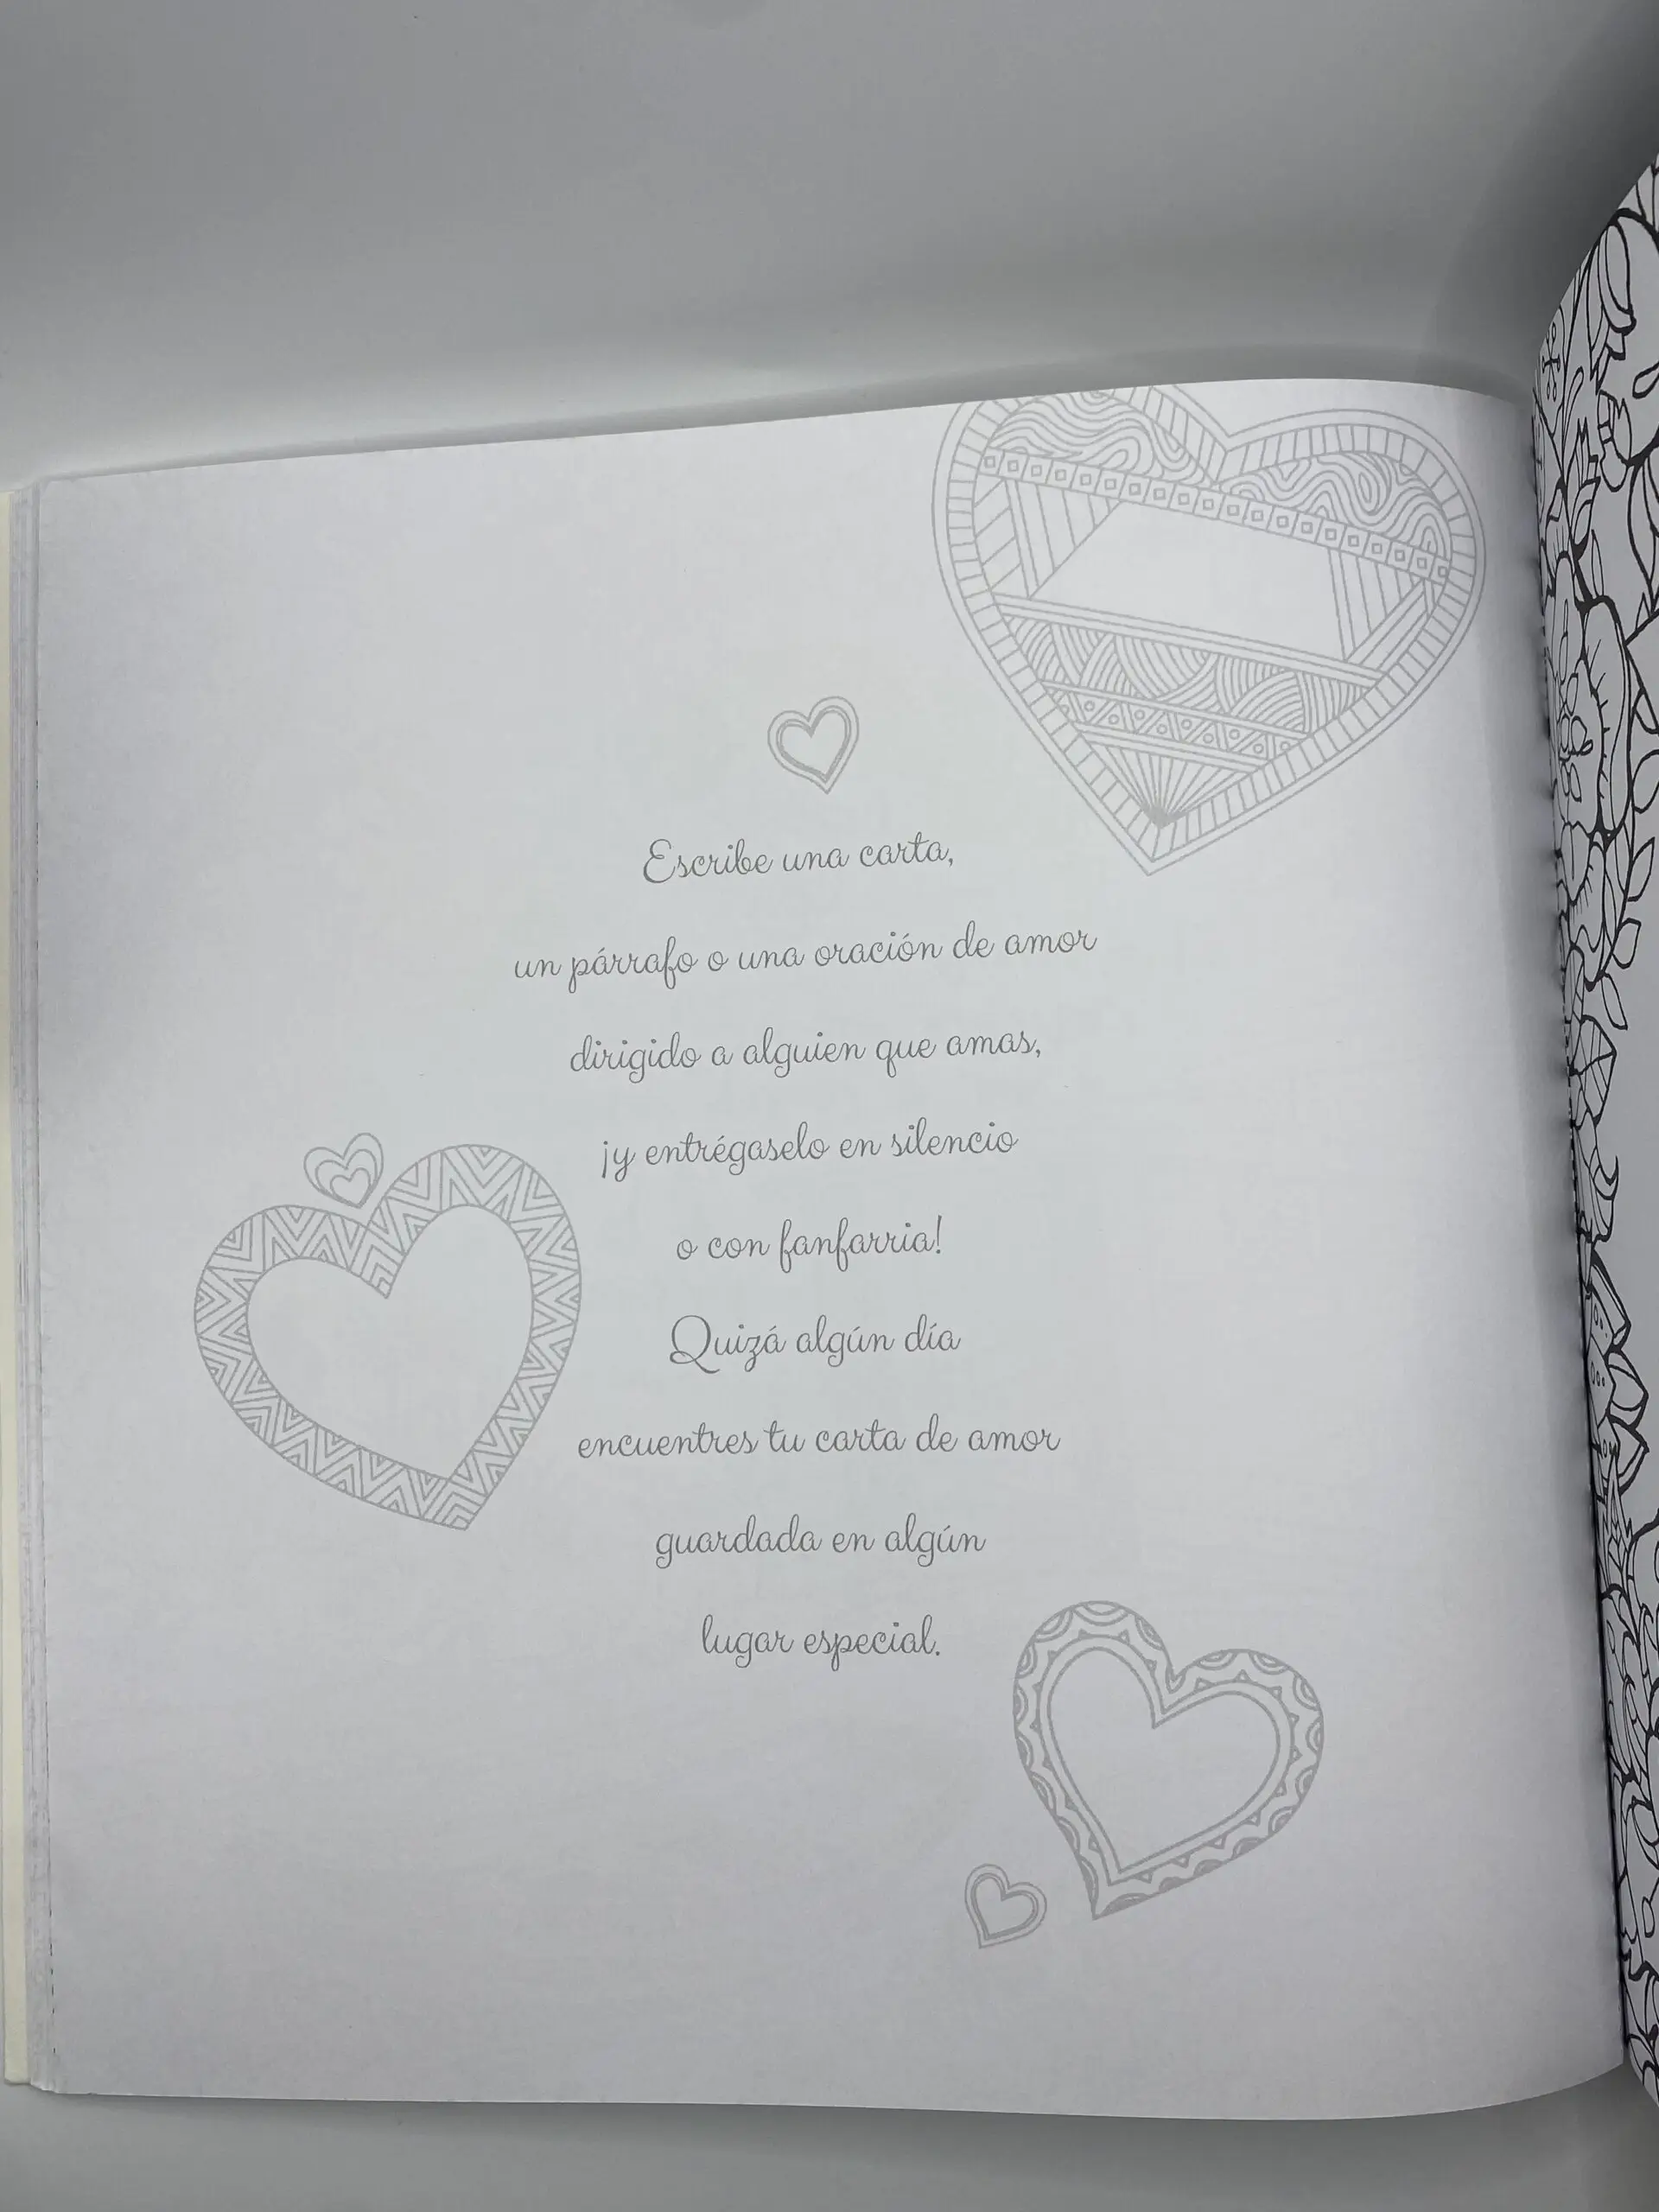 Escribe una carta,
un párrafo o una oración de amor
dirigido a alguien que amas,
¡y entrégaselo en silencio
o con fanfarria!
Quizá algún día
encuentres tu carta de amor
guardada en algún
lugar especial.